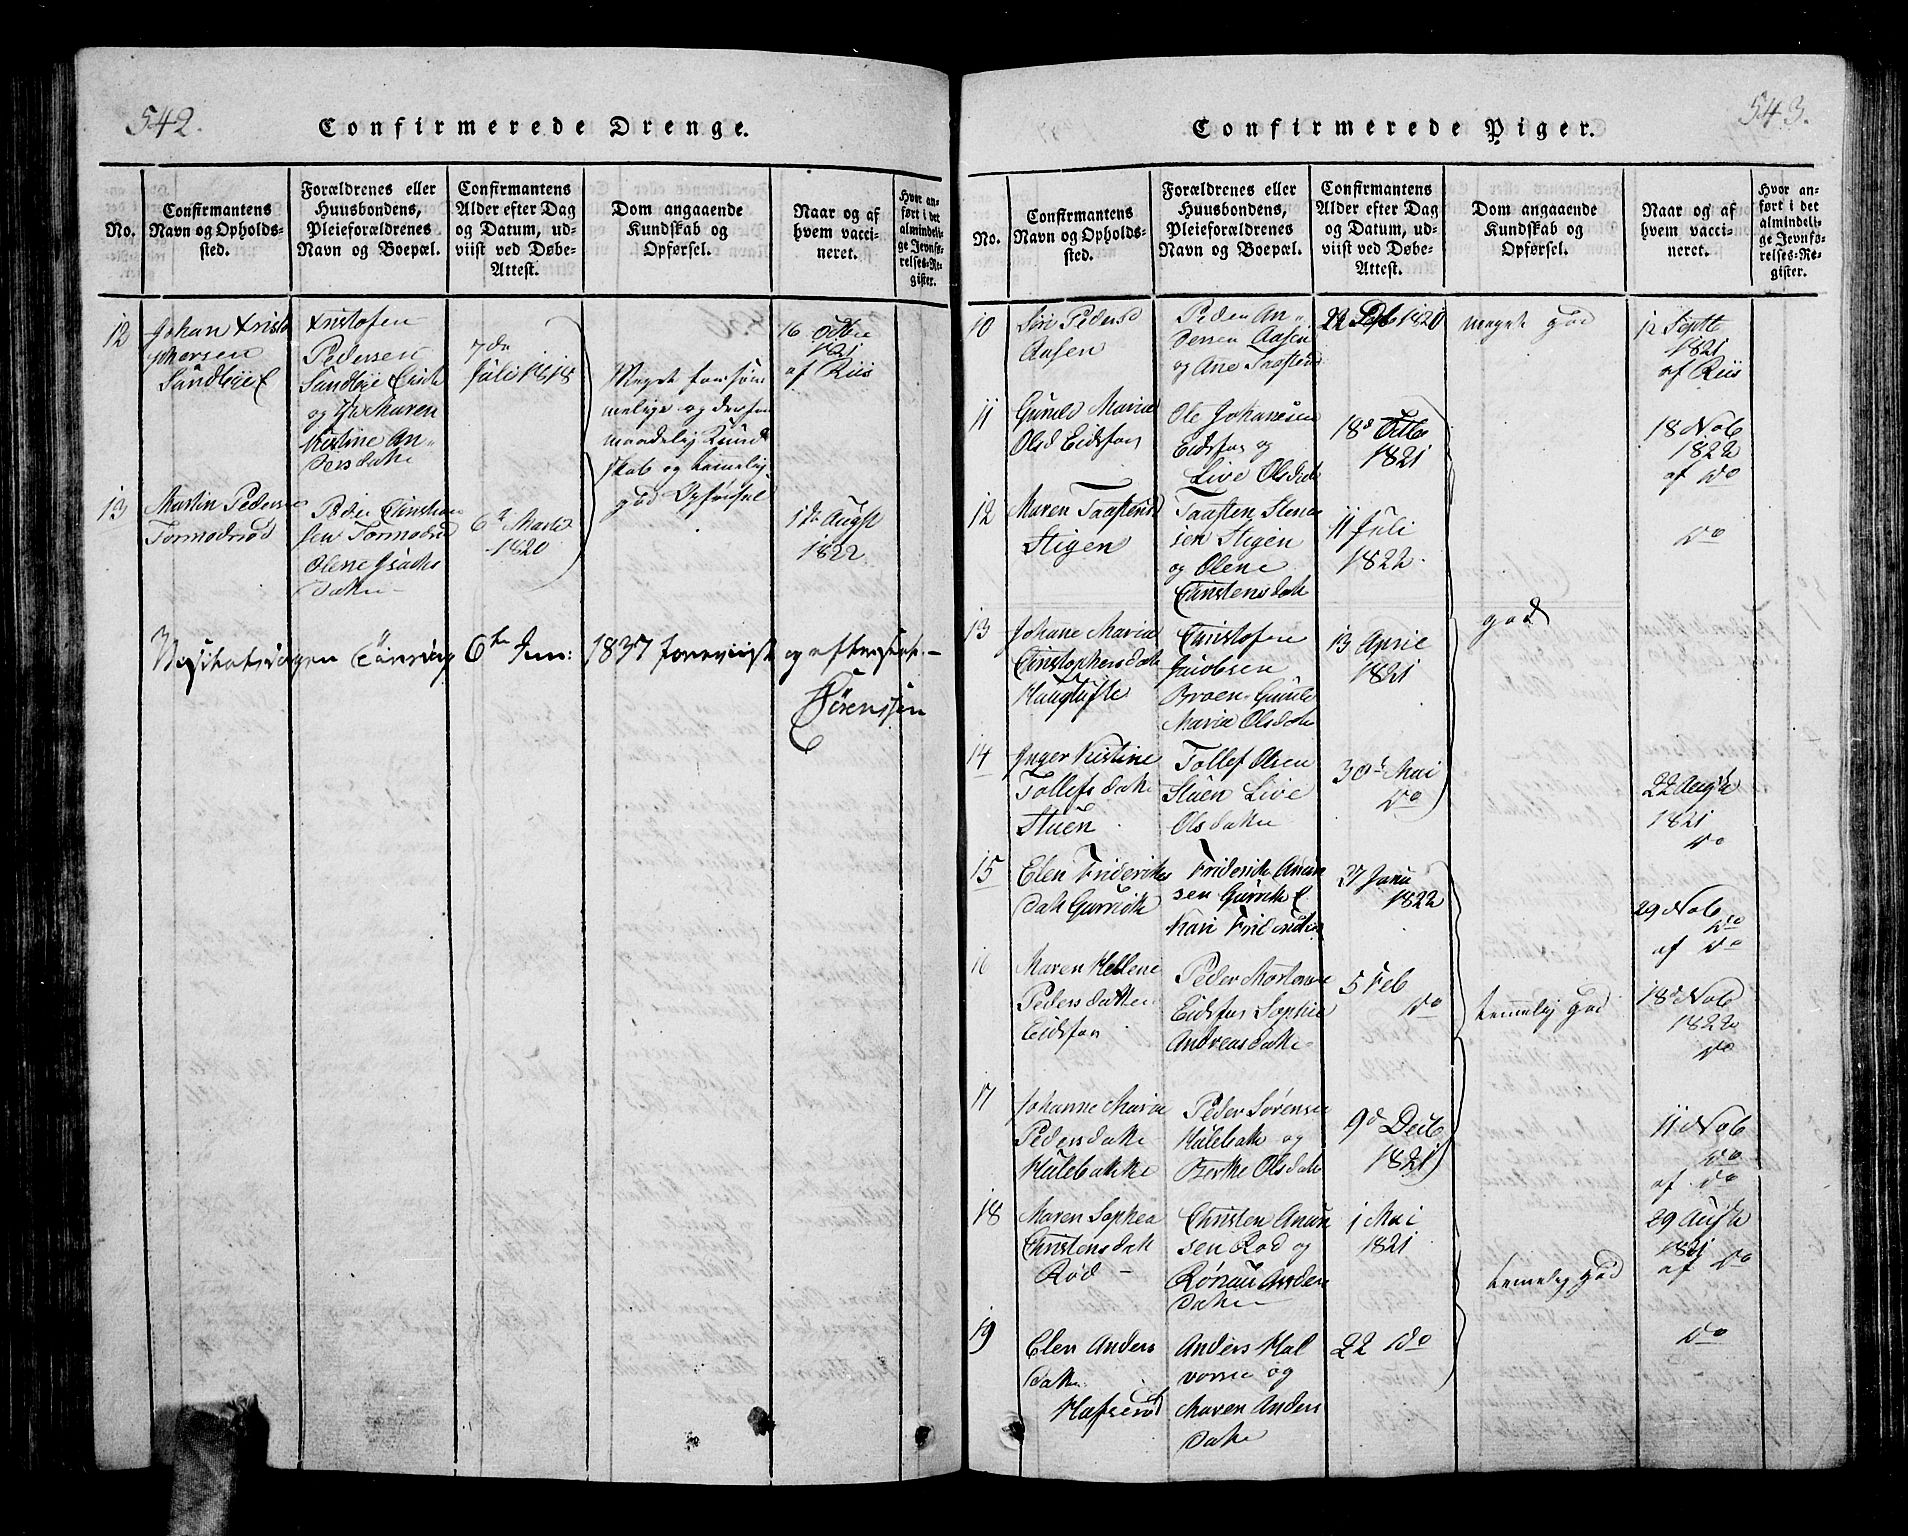 542.
Confirmerede Drenge.
No.
Confirmantens
Navn og Opholds-
sted.
Forældrenes eller
Huusbondens,
Pleieforældrenes
Navn og Boepæl.
Confirmantens
Alder efter Dag
og Datum, ud-
viist ved Døbe-
Attest.
Dom angaaende
Kundskab og
Opførsel.
Naar og af
hvem vacci-
neret.
Hvor an-
ført i det
almindeli-
ge Jevnfø-
relses-Re-
gister.
12
Johan Kristo
phersen
Kristofen
Pedersen
og Maren
Kristine An-
dersdatte
7de
Julii 1818
Meget
melige og
maadelig Kund
skab og temelig
god Opførsel
16 Octbr
1821
af Riis
13
Martin Peders
Tormodrød
Peder Christian
sen Tormodrød
Olene Isacks
datte
6te Marts
1820
1de Augst
1822
6te Jan: 1837 foreviist og efterseet.-
Sørenssen
543.
Confirmerede Piger.
No.
Confirmantens
Navn og Opholds-
sted.
Forældrenes eller
Huusbondens,
Pleieforældrenes
Navn og Boepæl.
Confirmantens
Alder efter Dag
og Datum, ud-
viist ved Døbe-
Attest.
Dom angaaende
Kundskab og
Opførsel.
Naar og af
hvem vacci-
neret.
Hvor an-
ført i det
almindeli-
ge Jevnfø-
relses-Re-
gister.
10
Siri Pedersd
Aasen
Peder An-
dersen Aasen
og Ane
22 1820
meget god
12 Septb
1821
af Riis
11
Gunild Maria
Olsd Eidsfos
Ole Johanesen
Eidsfos og
Live Olsdatt
18d Octb
1821
18 Nob
1822
af Do
12
Maren Taastensd
Stigen
Taasten Stene
sen Stigen
og Olene
Christensdatt
11 Juli
1822
Do
13
Johane Maria
Christophersdatt
Haugtufte
Christofen
Jacobsen
Broen Gunild
Maria Olsdatt
13 April
1821
god
14
Inger Kristine
Tollefsdatte
Stuen
Tollef Olsen
Stuen Live
Olsdatte
30d Mai
Do
22 Augst
1821
Do
15
Elen Frideriks
datt
Friderik Anun
sen
Kari
27 Janu
1822
29 Nob
Do
af Do
16
Maren Hellene
Pedersdatter
Eidsfos
Peder Mortense
Eidsfos Sophie
Andreasdatte
5 Feb
Do
temelig god
18d Nob
1822
Do
17
Johanne Maria
Pedersdatte
Hulebakke
Peder Sørensen
Hulebak og
Berthe Olsdatt
9d Decb
1821
11 Nob
Do
af do
18
Maren Sophea
Christensdatt
Rød -
Christen Anun
sen Rod og
Rønau Anders
datte
1 Mai
1821
temelig god
29 Augst
1821
af Do
19
Elen Anders
datte
Hafsrød
Anders Hal
vorsen og
Maren Anders
datte
22 Do
Do